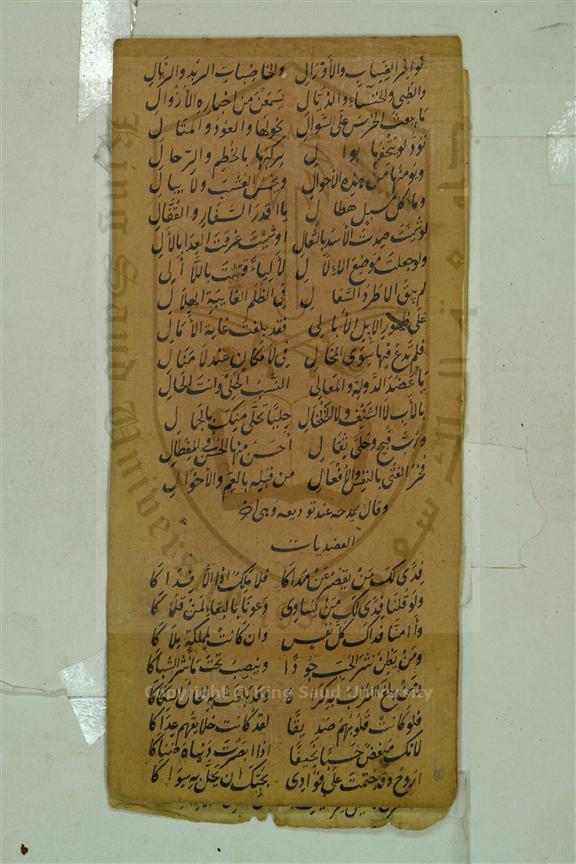 نوافر الضباب والأورال والخاضبات الربد والرئال
والظبي والخنساء والذيال يسمعن من اخباره الأزوال
ما يبعث الخرس على السوال فحولها والعوذ والمتا ل
تود لو يتحفها بوا ل يركبها بالخطم والرحا ل
ويومنها من هذه الاهوال ويخمس العشب ولا يبا ل
وماء كل مسبل هطا ل يا اقدر السفار والقفال
لو شئت صدت الأسد بالثعال او شئت غرقت العدا بالأ ل
ولو جعلت موضع الالا ل لألياء قتلت باللأ لى
لم يبق الا طرد السعا ل فى الظلم الغايبة الهلا ل
على ظهور الابل الأبا لى فقد بلغت غاية الأما ل
فلم تدع فيها سوى المحا ل فى لا مكان عند لا منا ل
يا عضد الدولة والمعالى النسب الحلى وانت الحالى
بالأب لا بالشنف ولا الخلخال حليا تحلى منك بالجما ل
ورب قبح وحلى ثقا ل أحسن منها الحسن فى المعطال
فخر الفتى بالنفس والأفعال من قبله بالعم والأخوا ل
وقال يمدحه عند توديعه وهى اخر
العضديات
فدى لك من يقصر عن مداكا فلا ملك اذا الا فدا كا
ولو قلنا فدى لك من يساوى دعونا بالبقاء لمن قلا كا
وأمنا فداك كل نفس وان كانت لمملكة ملا كا
ومن يظن نثر الحب جو دا وينصب تحت ما نثر الشباكا
فلو كانت قلوبهم صد يقا لقد كانت خلايقهم عداكا
لانك مبغض حسبا نحيفا اذا ابصرت دنياه ضناكا
اروح وقد ختمت على فوادى بحبك ان يحل به سوا كا